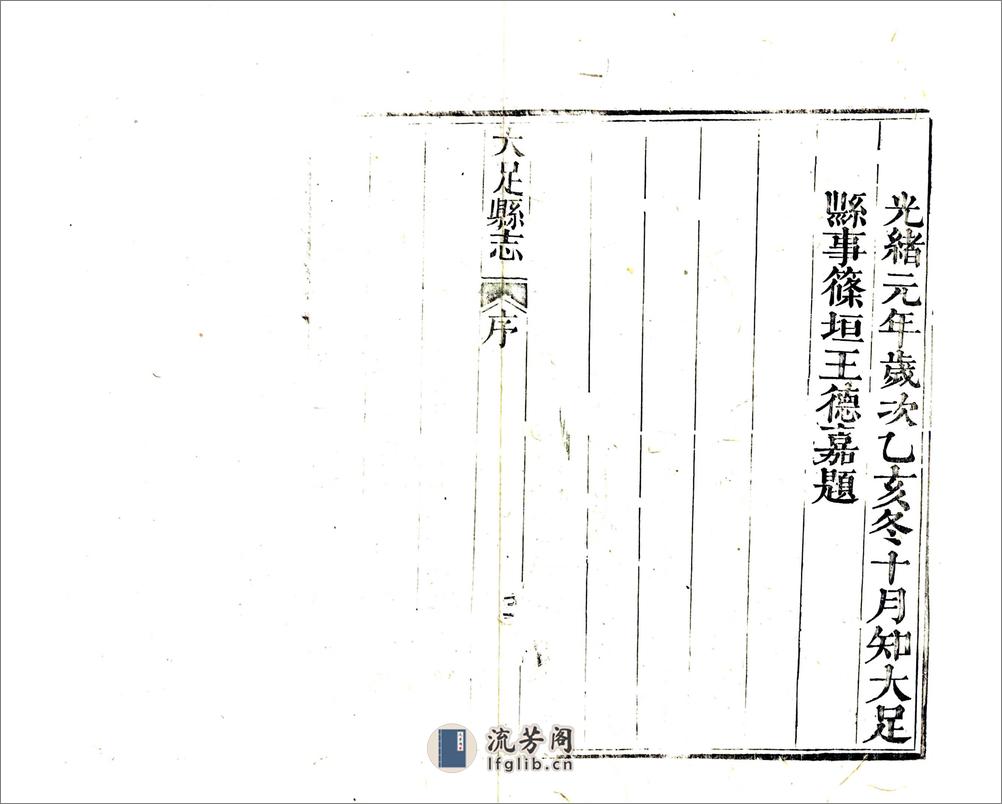 光緒元年歲次乙亥冬十月知大足
縣事篠垣王德嘉題
大足縣志
序
流芳阁
lfglib.cn